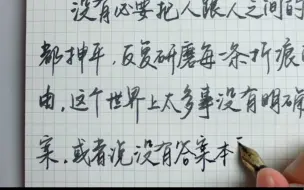 没有必要把人跟人之间的
都抻平，反复研磨每一条折痕的
由，这个世界上太多事没有明确
案，或者说没有答案本